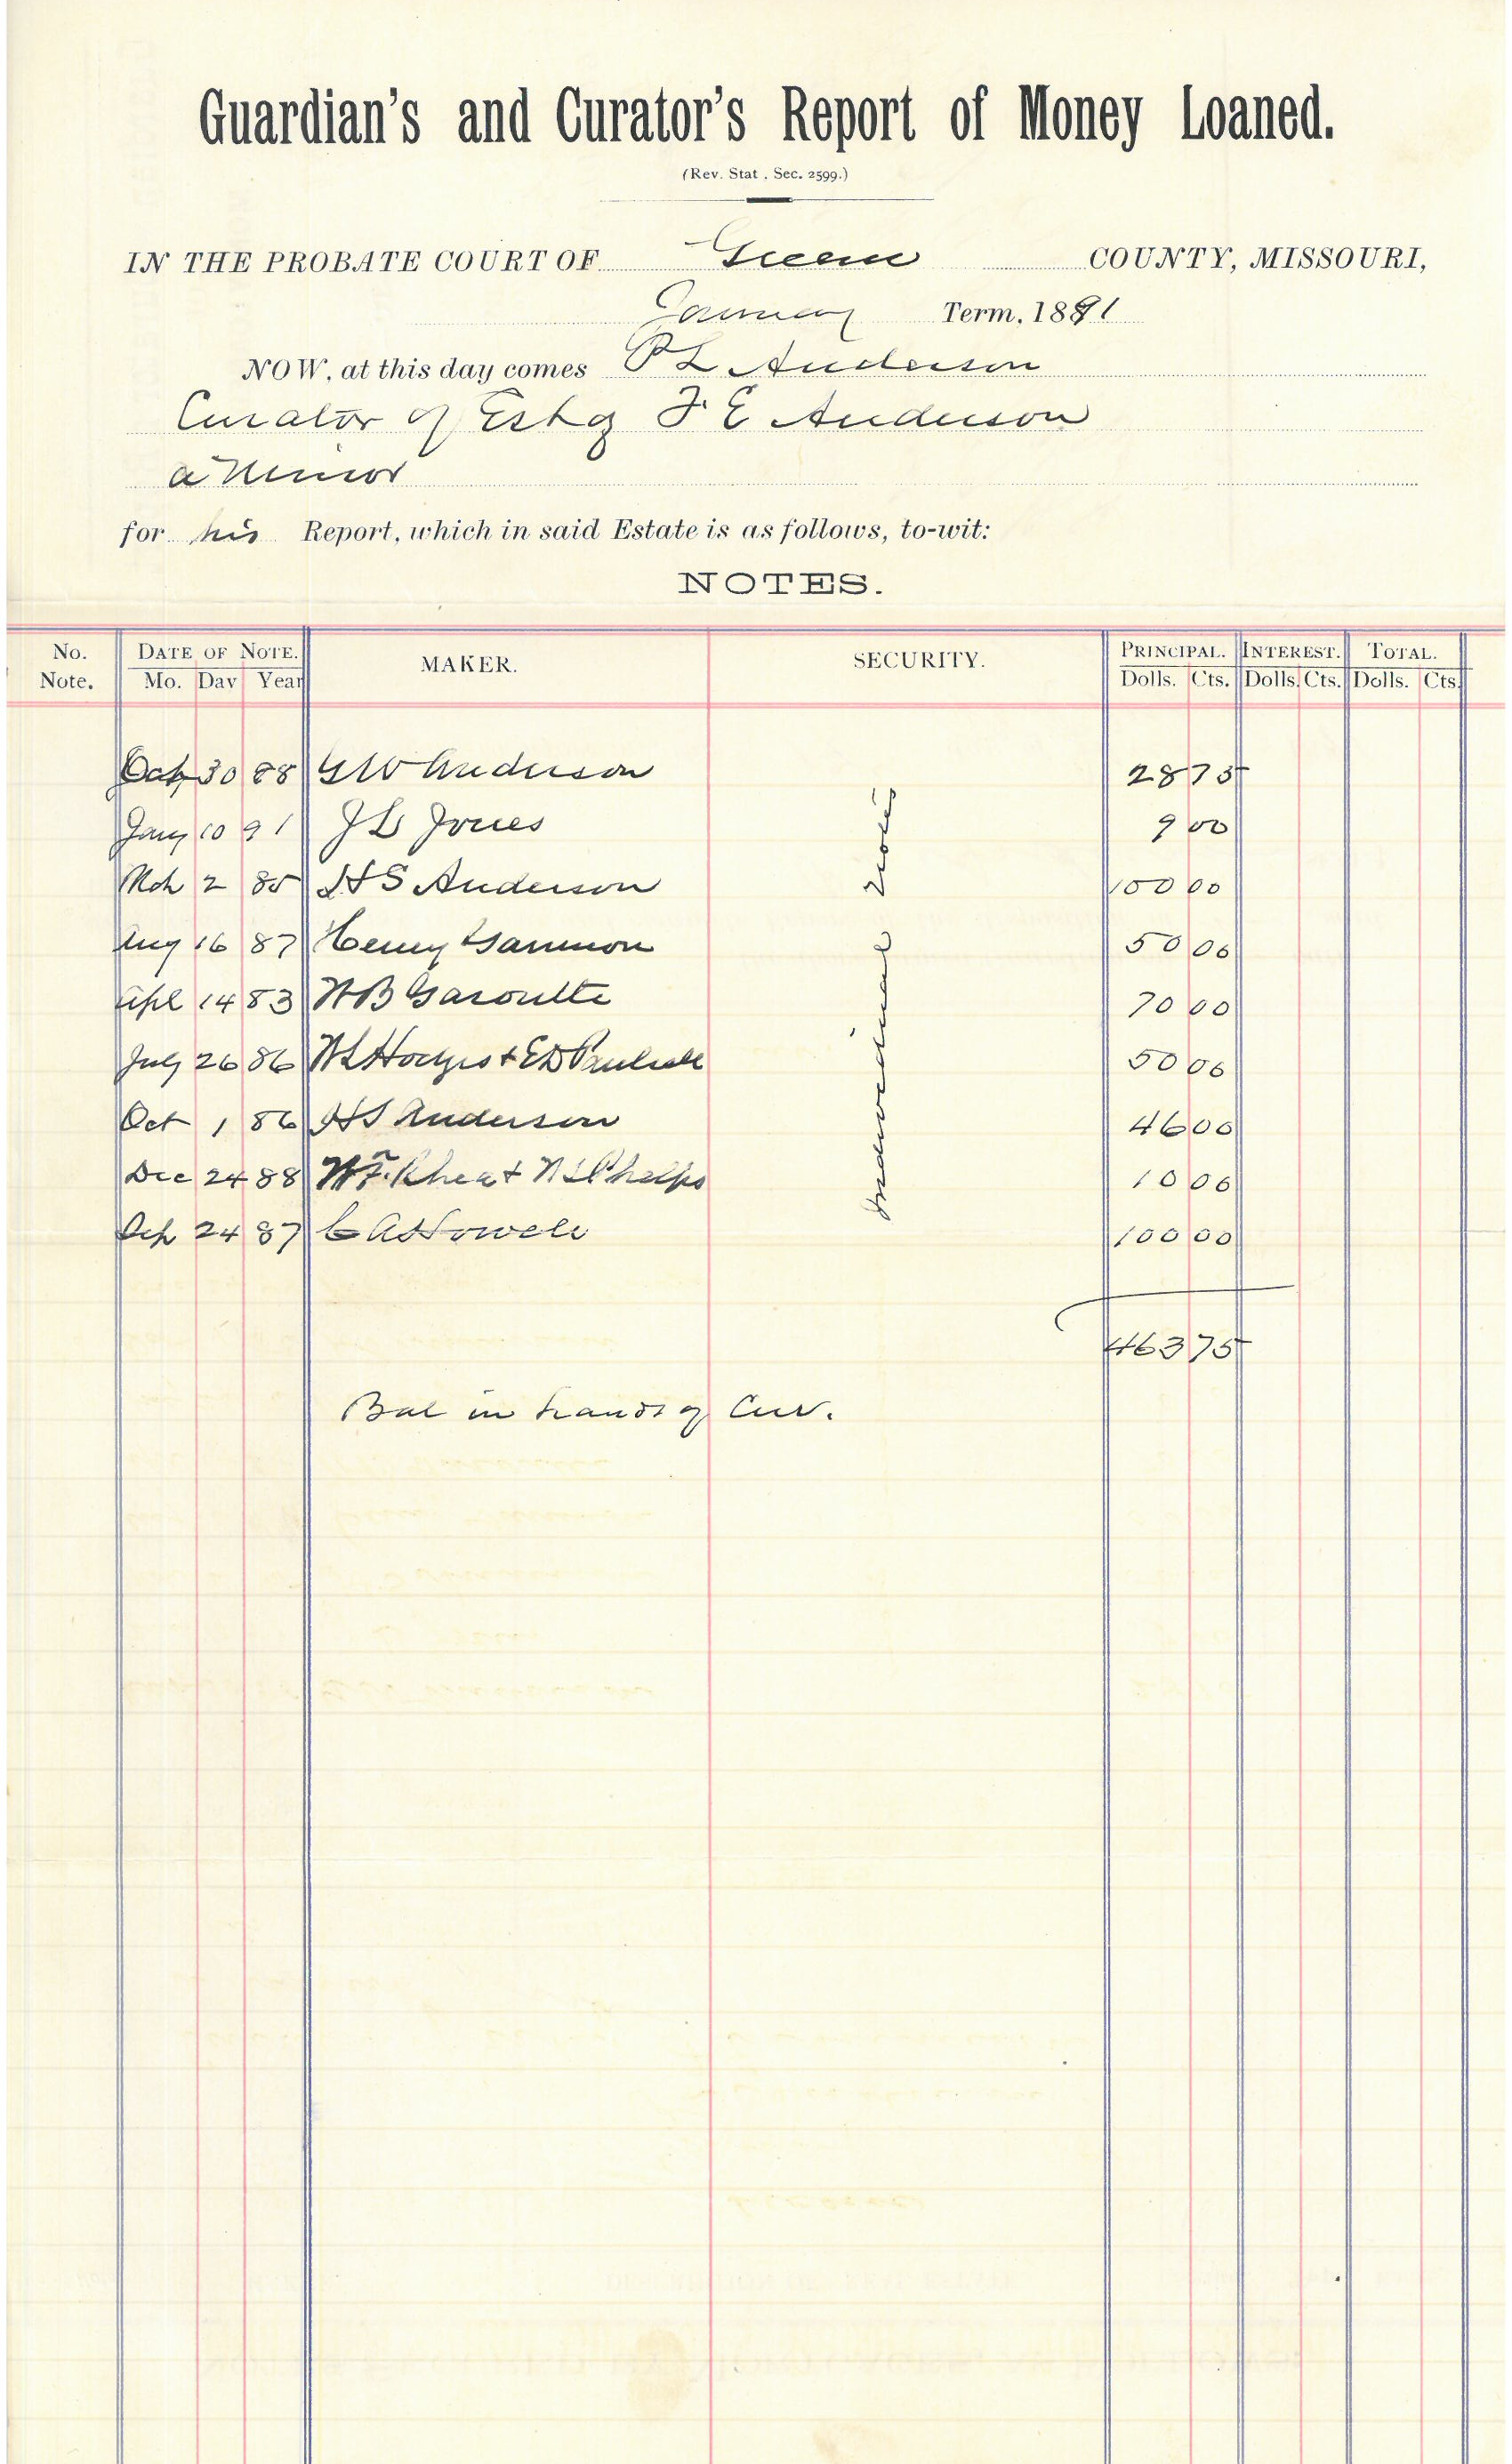 Guardian's and Curator's Report of Money Loaned.
(Rev. Stat. Sec. 2599.)
IN THE PROBATE COURT OF Greene COUNTY, MISSOURI,
January Term, 1891
NOW, at this day comes P L Anderson
Curator of Est of F E Anderson
a Minor
for his Report, which in said Estate is as follows, to-wit:
NOTES.
No. Note. DATE OF NOTE. Mo. Day Year MAKER. SECURITY. PRINCIPAL. Dolls. Cts. INTEREST. Dolls. Cts. TOTAL. Dolls. Cts.
30 88 G W Anderson 28 75
Jany 10 91 J L Jones 9 00
Mch 2 85 H S Anderson 100 00
Aug 16 87 Henry Gammon 50 00
Apl 14 83 W B Garoutte 70 00
July 26 86 50 00
Oct 1 86 H S Anderson 46 00
Dec 24 88 W F. Rhea & Phelps 10 00
24 87 C A Howell 100 00
Individual note
463 75
Bal in hands of Cur.